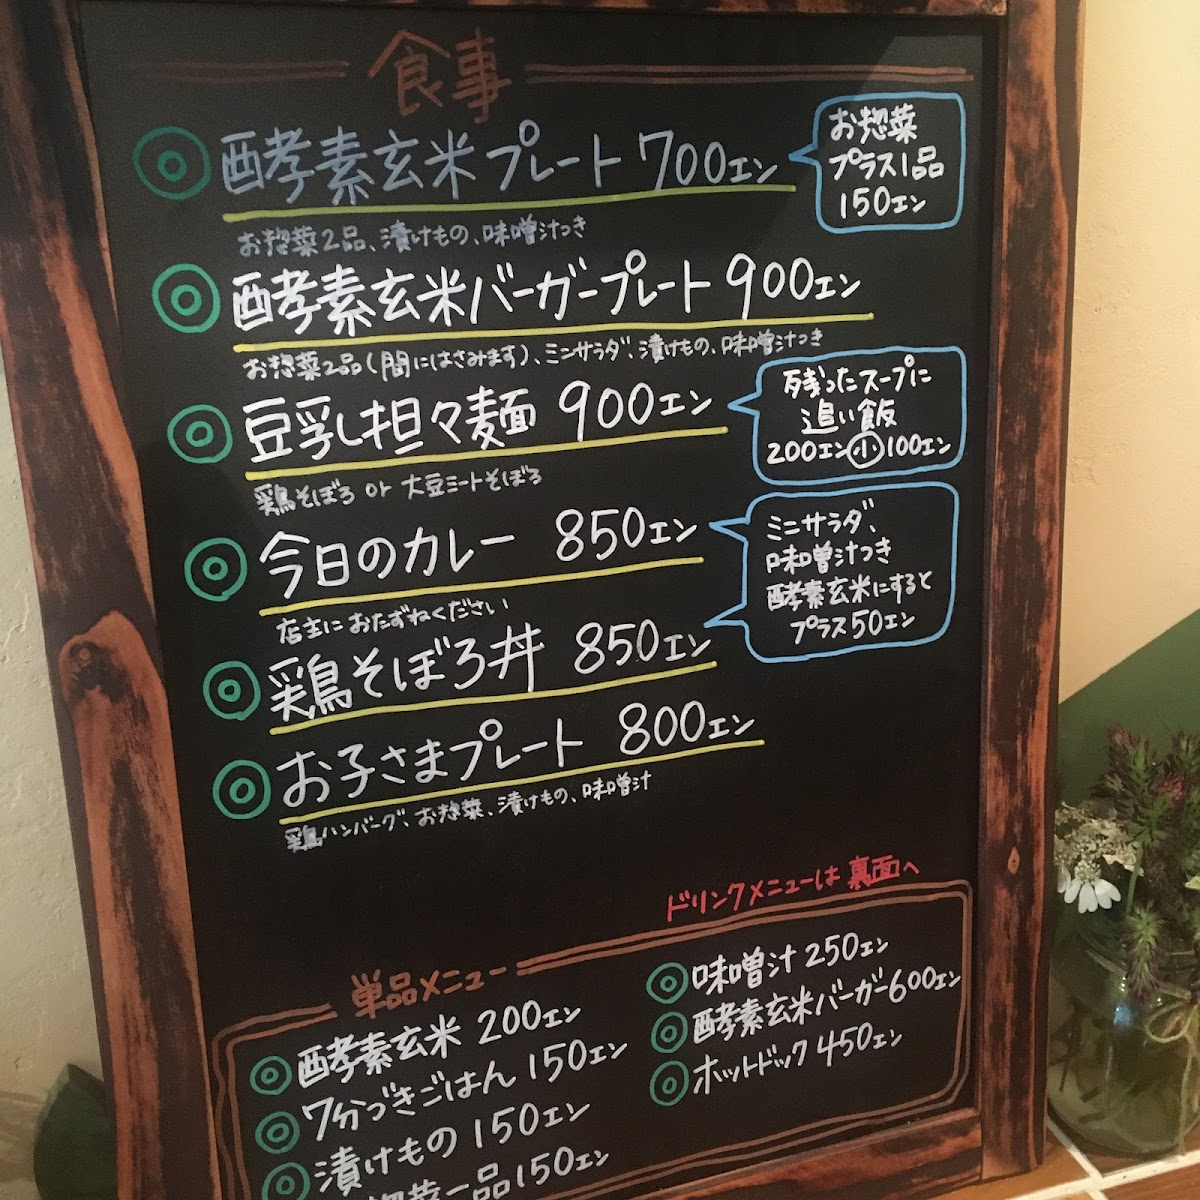 食事
酵素玄米プレート 700エン
お惣菜
プラス1品
150エン
お惣菜2品、漬けもの、味噌汁つき
酵素玄米バーガープレート 900エン
お惣菜2品(間にはさみます)、ミニサラダ、漬けもの、味噌汁つき
豆乳担々麺 900エン
残ったスープに
追い飯
200エン 小 100エン
鶏そぼろ or 大豆ミートそぼろ
今日のカレー 850エン
ミニサラダ、
味噌汁つき
酵素玄米にすると
プラス50エン
店主におたずねください
鶏そぼろ丼 850エン
お子さまプレート 800エン
鶏ハンバーグ、お惣菜、漬けもの、味噌汁
ドリンクメニューは裏面へ
単品メニュー
酵素玄米 200エン
7分づきごはん 150エン
漬けもの 150エン
惣菜一品 150エン
味噌汁 250エン
酵素玄米バーガー 600エン
ホットドック 450エン